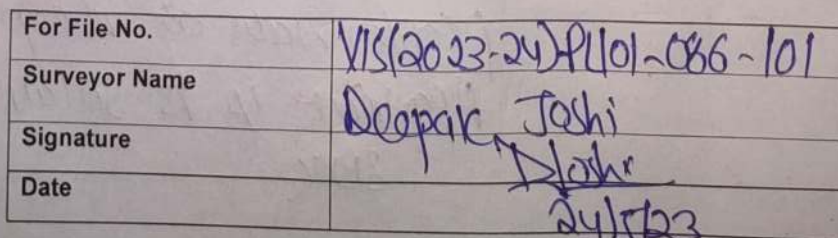 For File No. VIS(2023-24)-PL101-086-101
Surveyor Name Deepak Joshi
Signature DJoshi
Date 24/5/23